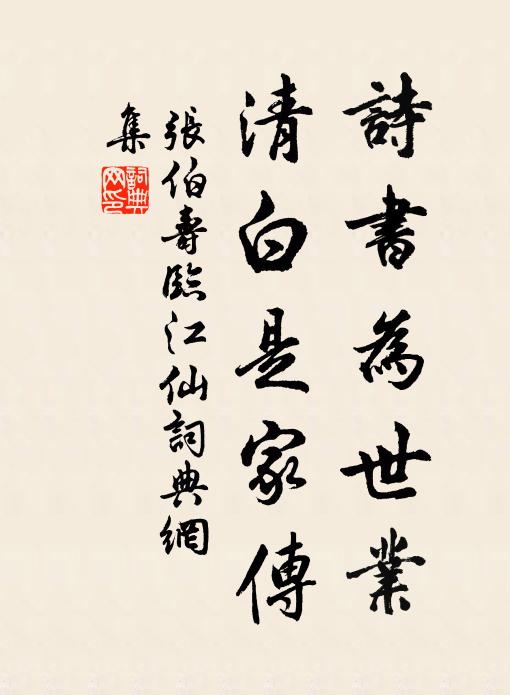 詩書為世業
清白是家傳
張伯壽臨江仙詞典網
集
詞典網印